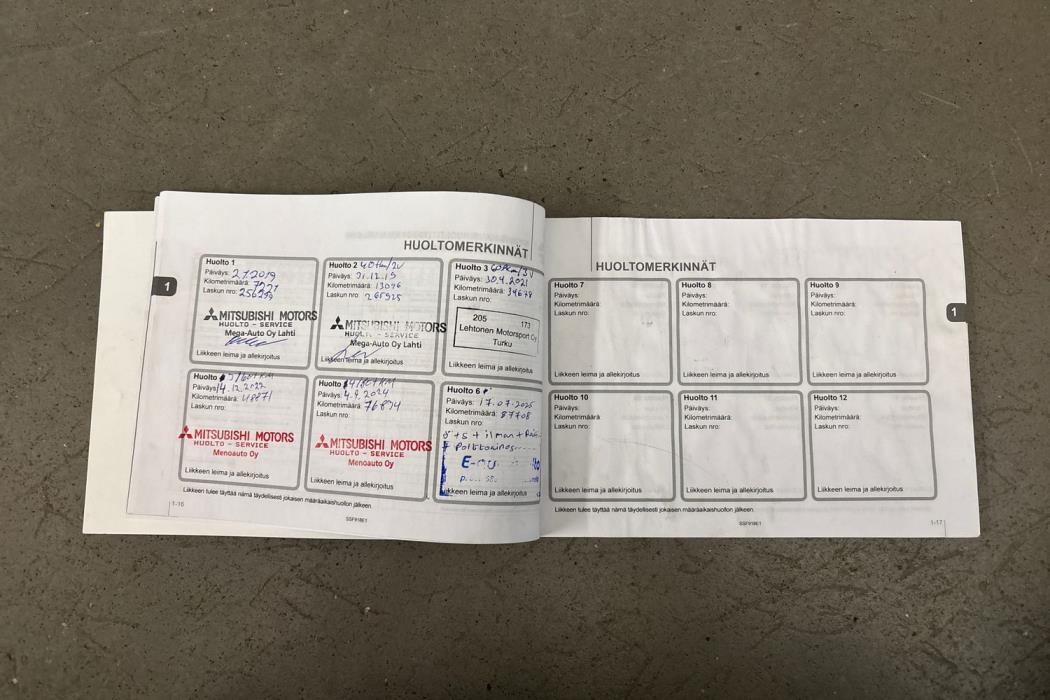 HUOLTOMERKINNÄT
Huolto 1
Päiväys: 2.7.2019
Kilometrimäärä:
Laskun nro:
MITSUBISHI MOTORS
HUOLTO - SERVICE
Mega-Auto Oy Lahti
Liikkeen leima ja allekirjoitus
Huolto 2
Päiväys: 31.12.19
Kilometrimäärä: 13096
Laskun nro: 265925
MITSUBISHI MOTORS
HUOLTO - SERVICE
Mega-Auto Oy Lahti
Liikkeen leima ja allekirjoitus
Huolto 3
Päiväys: 30.4.2021
Kilometrimäärä: 34678
Laskun nro:
205 173
Lehtonen Motorsport Oy
Turku
Liikkeen leima ja allekirjoitus
Huolto
Päiväys: 14.12.2022
Kilometrimäärä: 48871
Laskun nro:
MITSUBISHI MOTORS
HUOLTO - SERVICE
Menoauto Oy
Liikkeen leima ja allekirjoitus
Huolto
Päiväys: 4.9.2024
Kilometrimäärä: 76894
Laskun nro:
MITSUBISHI MOTORS
HUOLTO - SERVICE
Menoauto Oy
Liikkeen leima ja allekirjoitus
Huolto 6
Päiväys: 17.07.2025
Kilometrimäärä: 87708
Laskun nro:
Liikkeen leima ja allekirjoitus
Liikkeen tulee täyttää nämä täydellisesti jokaisen määräaikaishuollon jälkeen.
1-16
SSF918E1
1
HUOLTOMERKINNÄT
Huolto 7
Päiväys:
Kilometrimäärä:
Laskun nro:
Liikkeen leima ja allekirjoitus
Huolto 8
Päiväys:
Kilometrimäärä:
Laskun nro:
Liikkeen leima ja allekirjoitus
Huolto 9
Päiväys:
Kilometrimäärä:
Laskun nro:
Liikkeen leima ja allekirjoitus
Huolto 10
Päiväys:
Kilometrimäärä
Laskun nro:
Liikkeen leima ja allekirjoitus
Huolto 11
Päiväys:
Kilometrimäärä:
Laskun nro:
Liikkeen leima ja allekirjoitus
Huolto 12
Päiväys:
Kilometrimäärä:
Laskun nro:
Liikkeen leima ja allekirjoitus
Liikkeen tulee täyttää nämä täydellisesti jokaisen määräaikaishuollon jälkeen.
SSF918E1
1-17
1